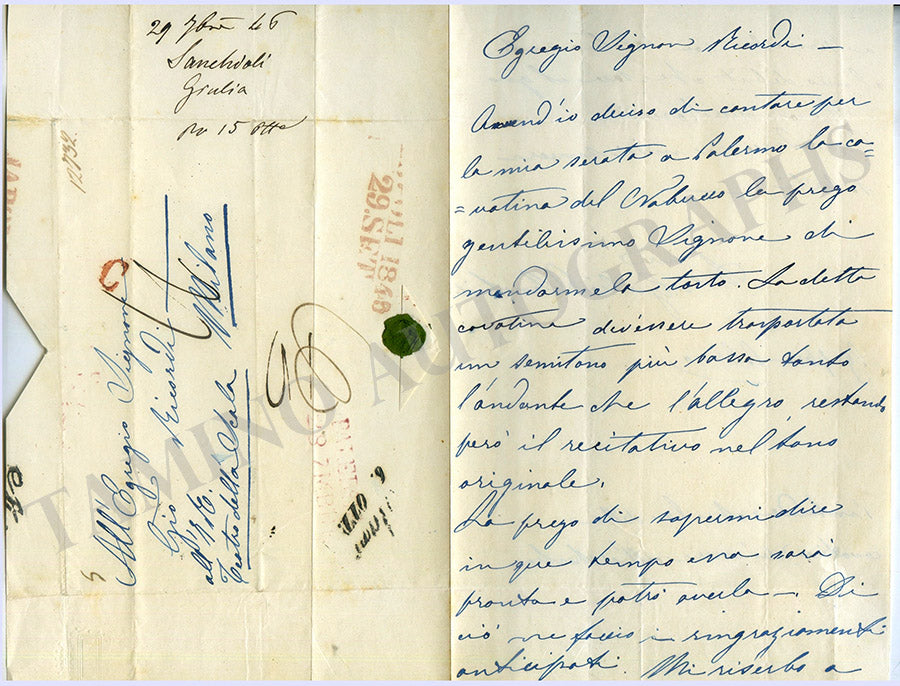 29 7bre 46
Sanchioli
Giulia
12732
NAPOLI 1846
29. SET
All'Egregio Signore
Gio Ricordi
all'I. e R.
Teatro della Scala Milano
6. OTT.
TAMINO AUTOGRAPHS
Egregio Signor Ricordi –
Avend'io deciso di cantare per
la mia serata a Palermo la ca=
=vatina del Nabucco la prego
gentilissimo Signore di
mandarmela tosto. La detta
cavatina dev'essere trasportata
un semitono più bassa tanto
l'andante che l'allegro, restando
però il recitativo nel tono
originale.
La prego di sapermi dire
in que tempo ella sarà
pronta e potrò averla –. Di
ciò ne faccio i ringraziamenti
anticipati. Mi riserbo a